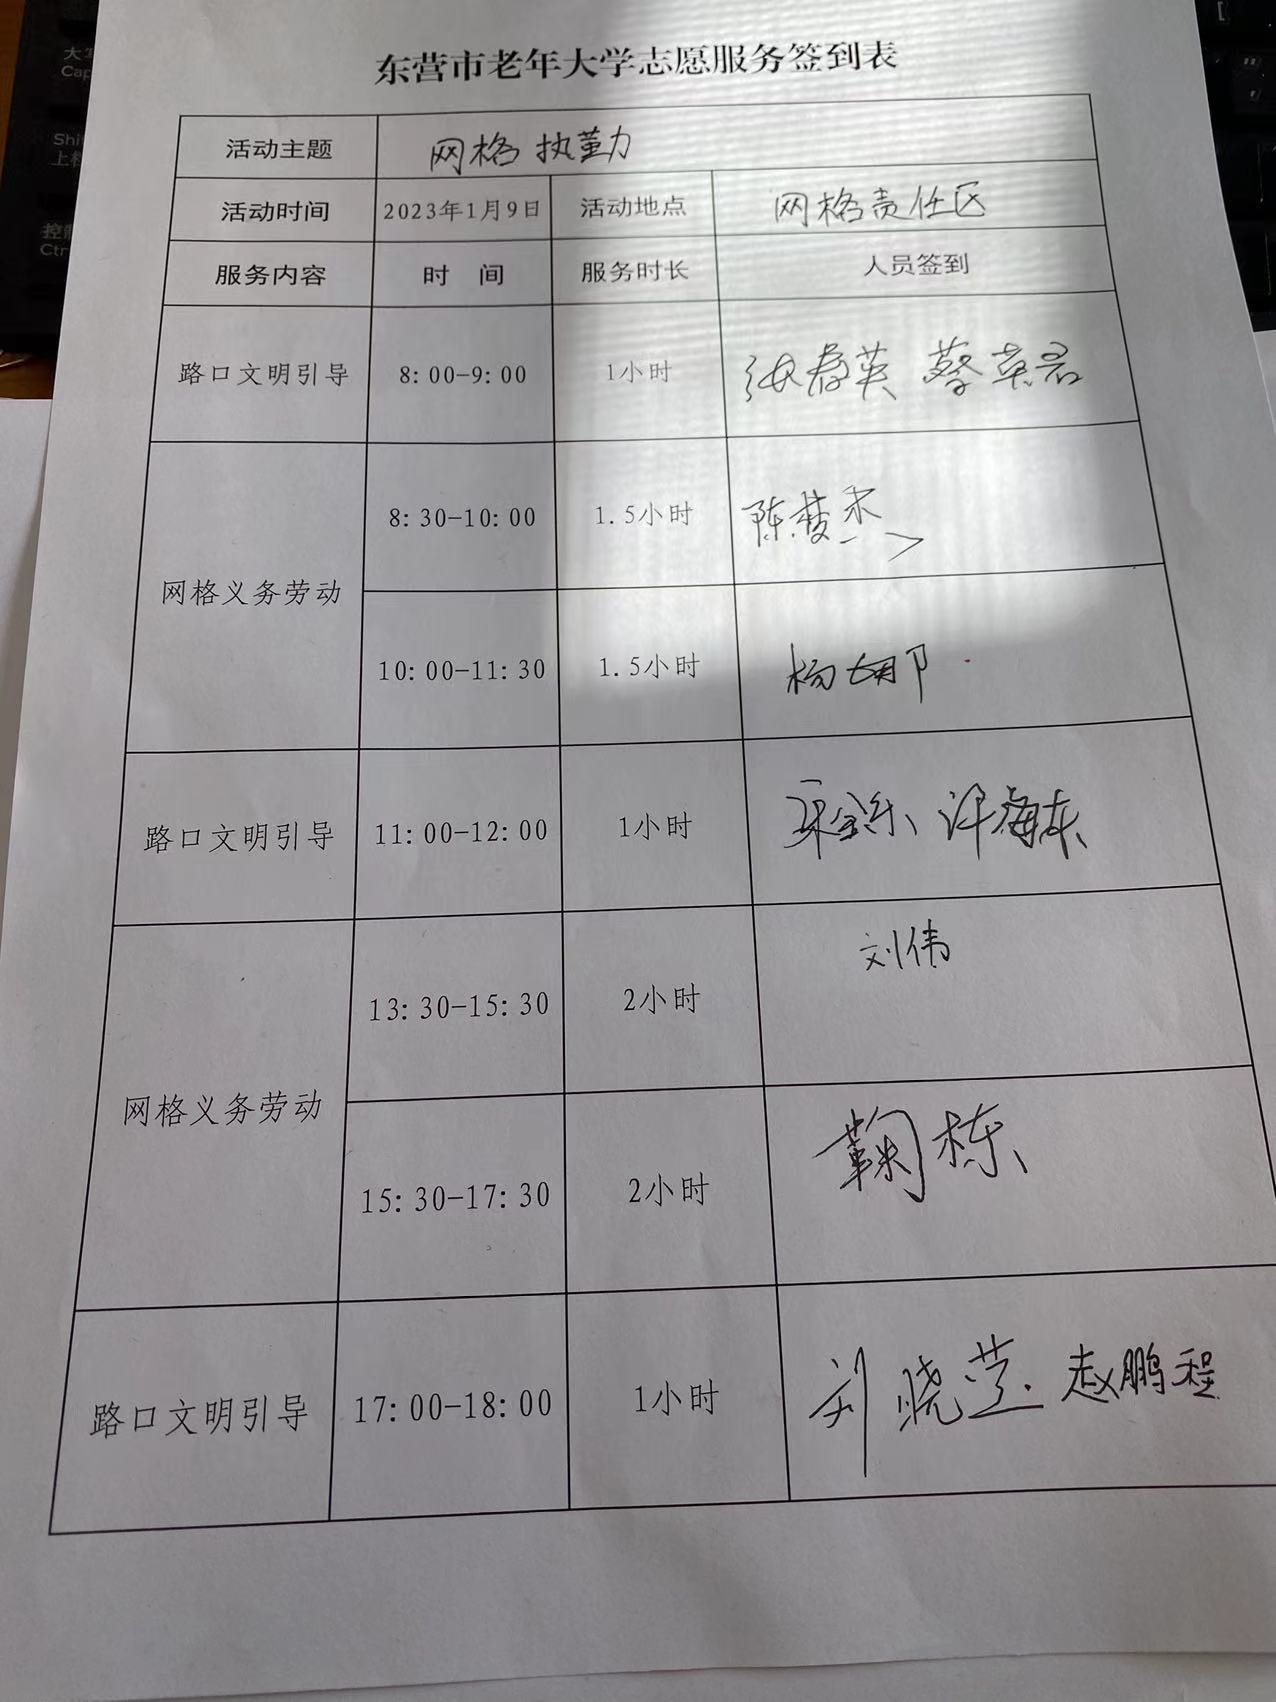 东营市老年大学志愿服务签到表
活动主题 网格执勤
活动时间 2023年1月9日 活动地点 网格责任区
服务内容 时 间 服务时长 人员签到
路口文明引导 8:00-9:00 1小时 张春英 蔡英君
8:30-10:00 1.5小时 陈梦杰
网格义务劳动
10:00-11:30 1.5小时 杨娜
路口文明引导 11:00-12:00 1小时 许海东
13:30-15:30 2小时 刘伟
网格义务劳动
15:30-17:30 2小时 鞠栋
路口文明引导 17:00-18:00 1小时 刘晓莹 赵鹏程